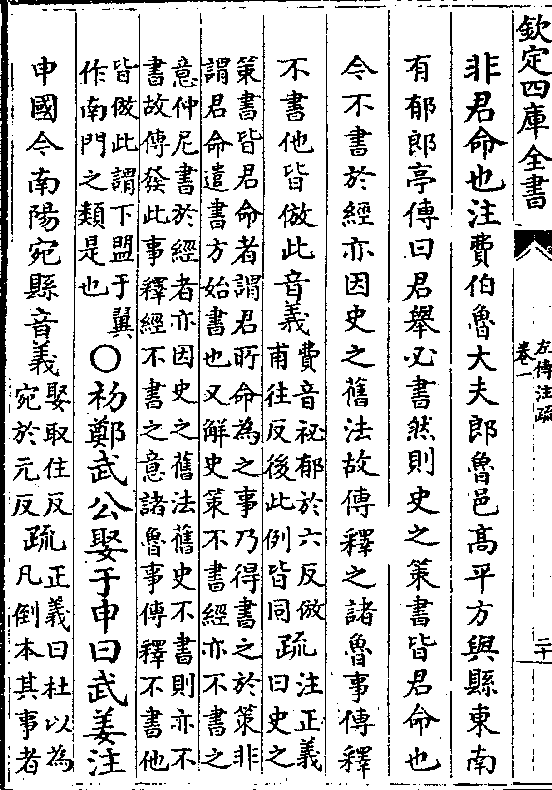 欽定四庫全書
左傳注疏
卷一
二十
非君命也注費伯魯大夫郎魯邑髙平方與縣東南
有郁郎亭傳曰君舉必書然則史之策書皆君命也
今不書於經亦因史之舊法故傳釋之諸魯事傳釋
不書他皆倣此音義
費音祕郁於六反倣
甫往反後此例皆同
疏
注正義
曰史之
策書皆君命者謂君所命為之事乃得書之於策非
謂君命遣書方始書也又解史策不書經亦不書之
意仲尼書於經者亦因史之舊法舊史不書則亦不
書故傳發此事釋經不書之意諸魯事傳釋不書他
皆倣此謂下盟于翼
作南門之類是也
○初鄭武公娶于申曰武姜注
申國今南陽宛縣音義
娶取住反
宛於元反
疏
正義曰杜以為
凡倒本其事者